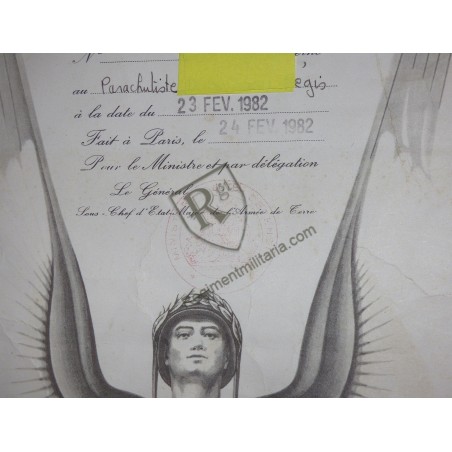 N°
au Parachutiste Regis
à la date du 23 FEV. 1982
Fait à Paris, le 24 FEV. 1982
Pour le Ministre et par délégation
Le Général
Sous-Chef d'Etat-Major de l'Armée de Terre
Rgt
regimentmilitaria.com